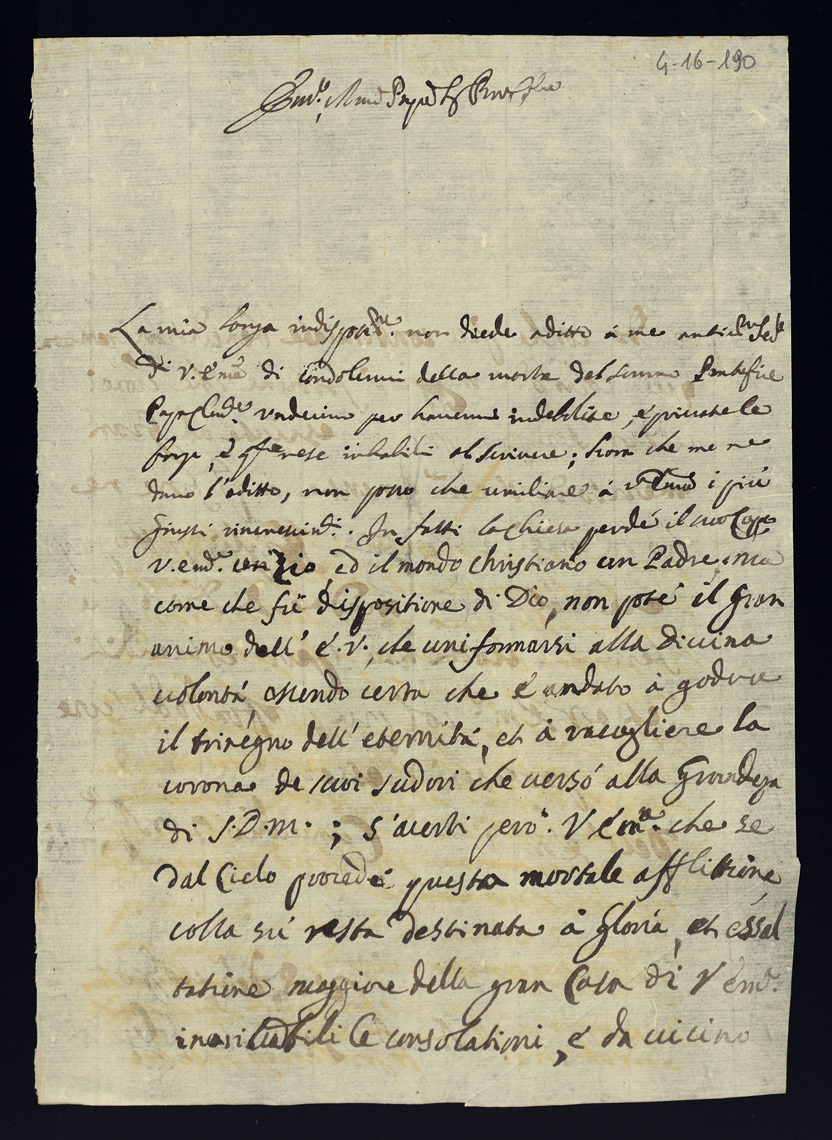 4-16-190
La mia longa indisposne. non diede aditto à me
di V. Ema di condolermi della morte del sommo Pontefice
Papa Clemte. undecimo per havermi indebilite, e privatele
forze, è inhabili al scrivere; hora che me ne
dano l'aditto, non posso che umiliare à i più
giusti rincrescimti. In fatti la chiesa perdé il suo Capo
V. Emza. un Zio, ed il mondo christiano un Padre, ma
come che fù dispositione di Dio, non poté il gran
animo dell' E. V. che uniformarsi alla divina
volontà, essendo certa che è andato à godere
il triregno dell' eternità, et à racogliere la
corona de suoi sudori che versó alla Grandeza
di S. D. M.; s'acerti però. V Ema. che se
dal Cielo procede questa mortale afflitione
colla sù resta destinata à gloria, et essal
tatione maggiore della gran Casa di V Ema.
le consolationi, e da vicino